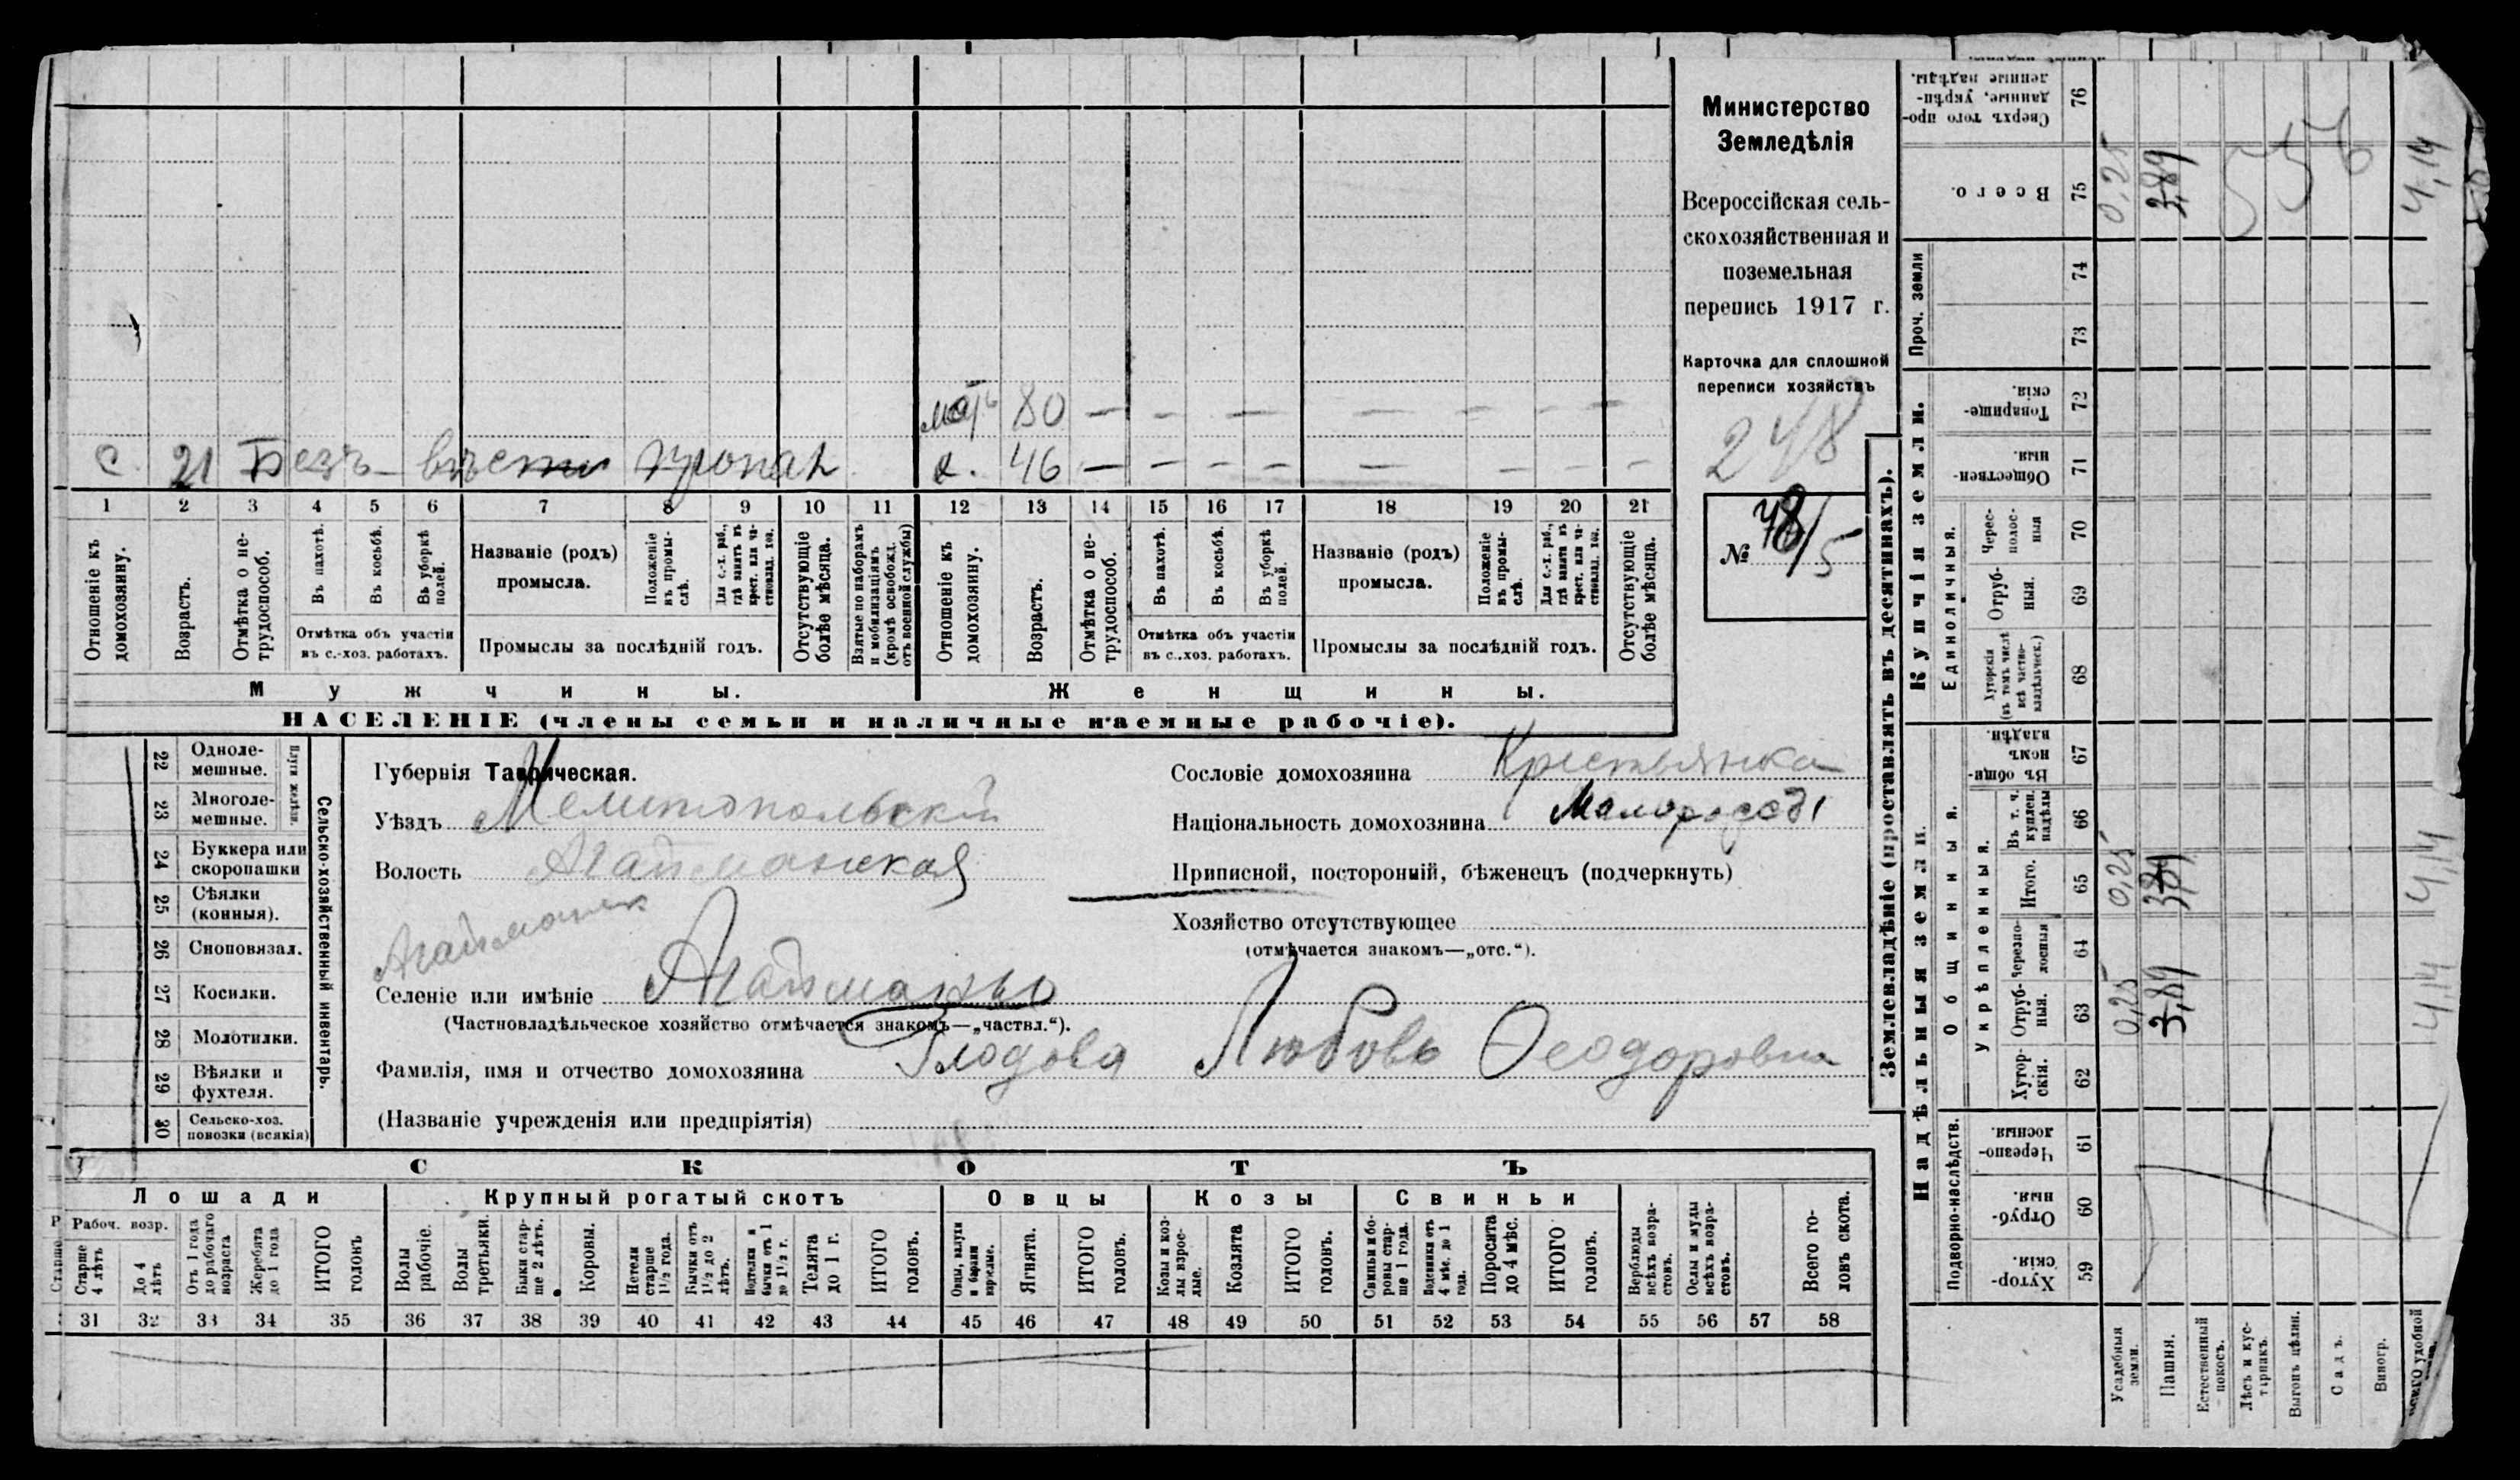 мать 80 — — — — — — — —
с. 21 Безъ вѣсти пропал х. 46 — — — — — — — —
1 2 3 4 5 6 7 8 9 10 11 12 13 14 15 16 17 18 19 20 21
Отношеніе къ домохозяину.
Возрастъ.
Отмѣтка о не-трудоспособ.
Въ пахотѣ.
Въ косьбѣ.
Въ уборкѣ полей.
Отмѣтка объ участіи
въ с.-хоз. работахъ.
Названіе (родъ)
промысла.
Положеніе въ промы-слѣ.
Для с.-х. раб., гдѣ занятъ въ крест. или ча-стновлад. хоз.
Промыслы за послѣдній годъ.
Отсутствующіе болѣе мѣсяца.
Взятые по наборамъ и мобилизаціямъ (кромѣ освобожд. отъ военной службы)
Отношеніе къ домохозяину.
Возрастъ.
Отмѣтка о не-трудоспособ.
Въ пахотѣ.
Въ косьбѣ.
Въ уборкѣ полей.
Отмѣтка объ участіи
въ с.-хоз. работахъ.
Названіе (родъ)
промысла.
Положеніе въ промы-слѣ.
Для с.-х. раб., гдѣ занятъ въ крест. или ча-стновлад. хоз.
Промыслы за послѣдній годъ.
Отсутствующіе болѣе мѣсяца.
Мужчины. Женщины.
НАСЕЛЕНІЕ (члены семьи и наличные наемные рабочіе).
Министерство
Земледѣлія
Всероссійская сель-
скохозяйственная и
поземельная
перепись 1917 г.
Карточка для сплошной
переписи хозяйствъ
248
№ 78/5
22 Одноле-мешные.
23 Многоле-мешные.
Плуги желѣзн.
24 Буккера или скоропашки
25 Сѣялки (конныя).
26 Сноповязал.
27 Косилки.
28 Молотилки.
29 Вѣялки и фухтеля.
30 Сельско-хоз. повозки (всякія)
Сельско-хозяйственный инвентарь.
Губернія Таврическая.
Уѣздъ Мелитопольскій
Волость Агайманская
Агайманск
Селеніе или имѣніе Агайманы
(Частновладѣльческое хозяйство отмѣчается знакомъ—„частвл.“).
Фамилія, имя и отчество домохозяина Глодова Любовь Ѳеодоровна
(Названіе учрежденія или предпріятія)
Сословіе домохозяина Крестьянка
Національность домохозяина Малоросс
Приписной, посторонній, бѣженецъ (подчеркнуть)
Хозяйство отсутствующее
(отмѣчается знакомъ—„отс.“).
СКОТЪ
Лошади
Крупный рогатый скотъ
Овцы
Козы
Свиньи
Рабоч. возр.
Старше 4 лѣтъ
До 4 лѣтъ
Отъ 1 года до рабочаго возраста
Жеребята до 1 года
ИТОГО головъ
Волы рабочіе.
Волы третьяки.
Быки стар-ше 2 лѣтъ.
Коровы.
Нетели старше 1½ года.
Бычки отъ 1½ до 2 лѣтъ.
Подтелки и бычки отъ 1 до 1½ г.
Телята до 1 г.
ИТОГО головъ.
Овцы, валухи и бараны взрослые.
Ягнята.
ИТОГО головъ.
Козы и коз-лы взрос-лые.
Козлята
ИТОГО головъ.
Свиньи и бо-ровы стар-ше 1 года.
Подсвинки отъ 4 мѣс. до 1 года.
Поросята до 4 мѣс.
ИТОГО головъ.
Верблюды всѣхъ возра-стовъ.
Ослы и мулы всѣхъ возра-стовъ.
Всего го-ловъ скота.
31 32 33 34 35 36 37 38 39 40 41 42 43 44 45 46 47 48 49 50 51 52 53 54 55 56 57 58
Землевладѣніе (проставлять въ десятинахъ).
Надѣльныя земли.
Купчія земли.
Проч. земли
Подворно-наслѣдств.
Общинныя.
Укрѣпленныя.
Единоличныя.
Хутор-скія. 59
Отруб-ныя. 60
Черезпо-лосныя. 61
Хутор-скія. 62
Отруб-ныя. 63 0,25 3,89 4,14
Черезпо-лосныя 64
Итого. 65 0,25 3,89 4,14
Въ т. ч. куплен. надѣлы 66
Въ общин-номъ владѣн. 67
Хуторскія (въ томъ числѣ всѣ частно-владѣльческ.) 68
Отруб-ныя. 69
Черес-полос-ныя 70
Обществен-ныя. 71
Товарище-скія. 72
73
74
Всего. 75 0,25 3,89 4,14
Сверхъ того про-данные, укрѣп-ленные надѣлы. 76
556
Усадебныя земли.
Пашня.
Естественный покосъ.
Лѣсъ и кус-тарникъ.
Выгонъ цѣлин.
Садъ.
Виногр.
всего удобной